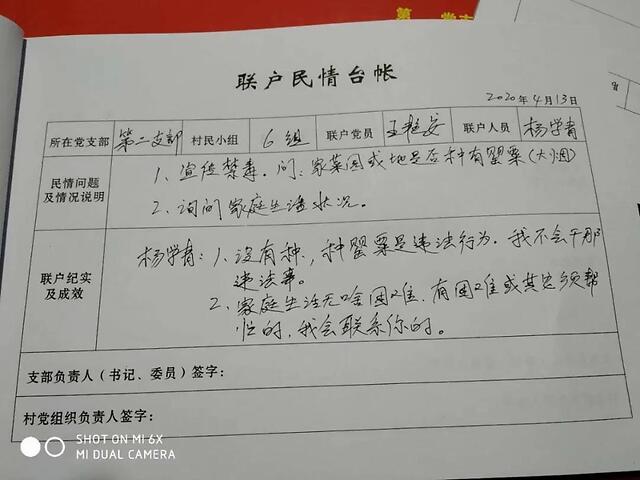 第
联户民情台帐
2020年4月13日
所在党支部 第二支部 村民小组 6组 联户党员 联户人员 杨学青
民情问题
及情况说明
1、宣传禁毒。问:家菜园或地是否种有罂粟(大烟)
2、询问家庭生活状况。
联户纪实
及成效
杨学青:1、没有种,种罂粟是违法行为。我不会干那
违法事。
2、家庭生活无啥困难,有困难或其它须帮
忙的,我会联系你的。
支部负责人(书记、委员)签字:
村党组织负责人签字:
SHOT ON MI 6X
MI DUAL CAMERA